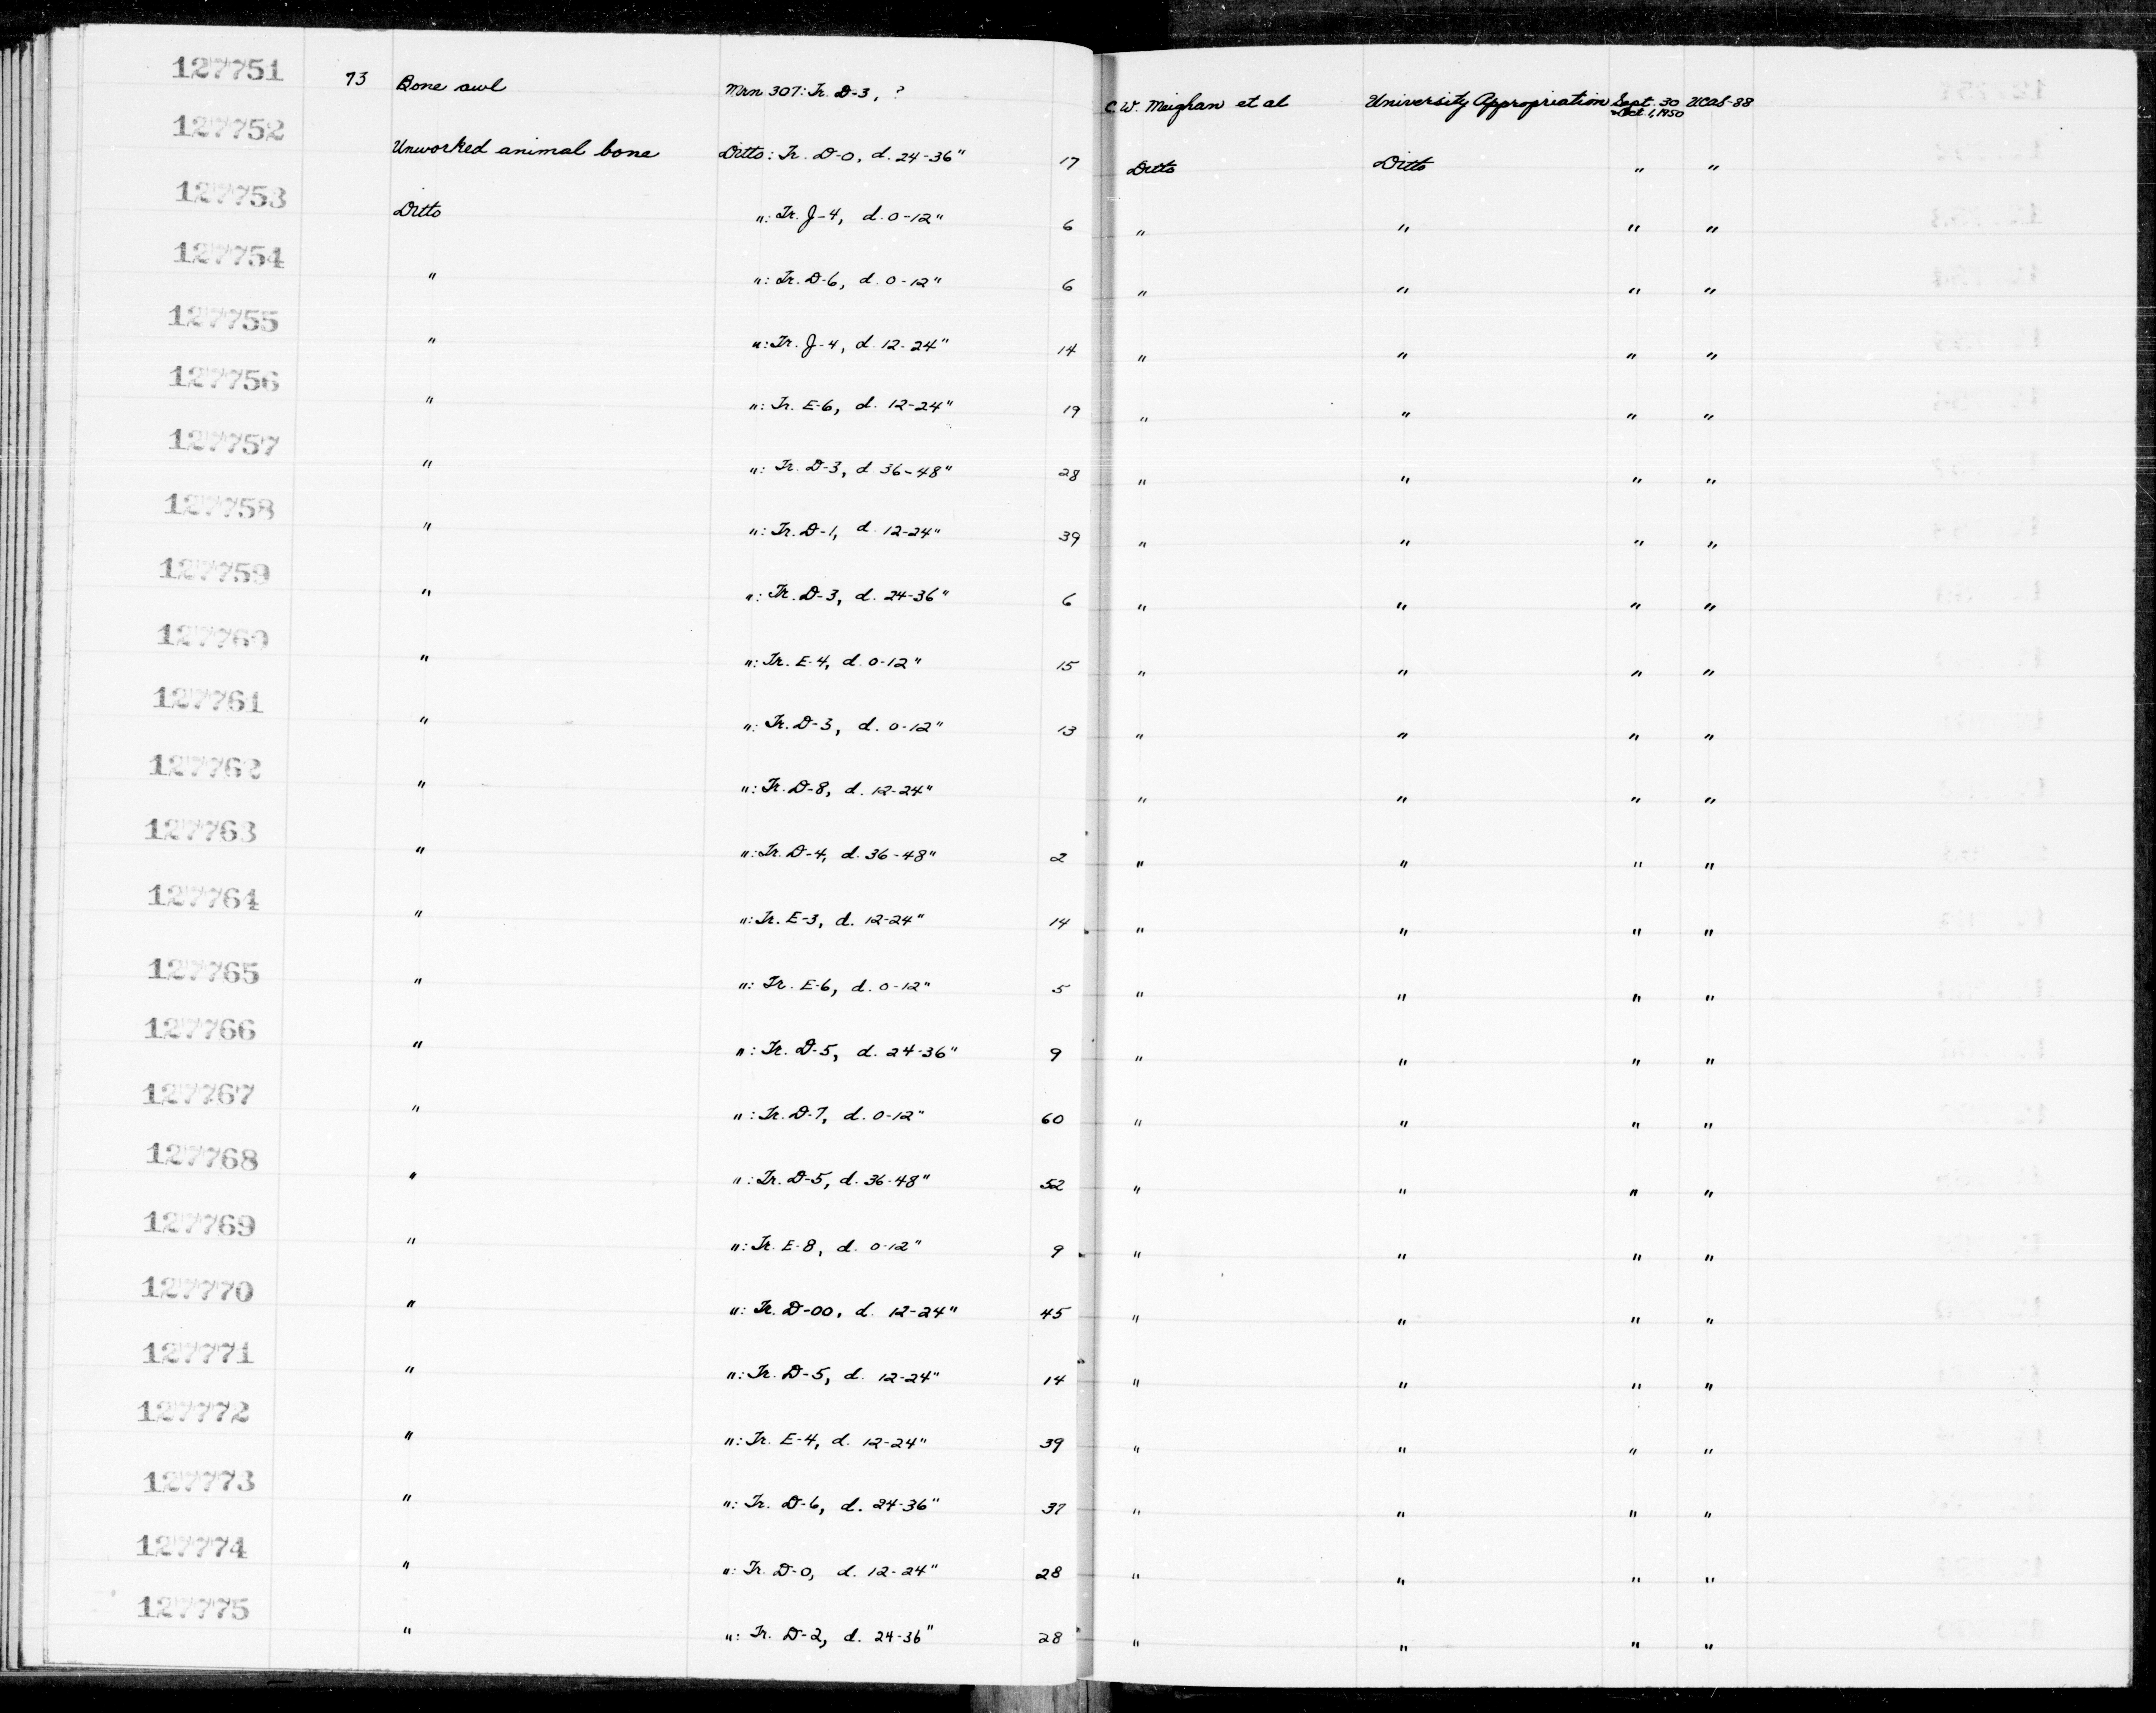 127751 73 Bone awl Mrn 307: Tr. D-3, ? C.W. Meighan et al University Appropriation Sept. 30 - Oct 1, 1950 UCAS-88
127752 Unworked animal bone Ditto: Tr. D-0, d. 24-36" 17 Ditto Ditto " "
127753 Ditto ": Tr. J-4, d. 0-12" 6 " " " "
127754 " ": Tr. D-6, d. 0-12" 6 " " " "
127755 " ": Tr. J-4, d. 12-24" 14 " " " "
127756 " ": Tr. E-6, d. 12-24" 19 " " " "
127757 " ": Tr. D-3, d 36-48" 28 " " " "
127758 " ": Tr. D-1, d. 12-24" 39 " " " "
127759 " ": Tr. D-3, d. 24-36" 6 " " " "
127760 " ": Tr. E-4, d. 0-12" 15 " " " "
127761 " ": Tr. D-3, d. 0-12" 13 " " " "
127762 " ": Tr. D-8, d. 12-24" " " " "
127763 " ": Tr. D-4, d. 36-48" 2 " " " "
127764 " ": Tr. E-3, d. 12-24" 14 " " " "
127765 " ": Tr. E-6, d. 0-12" 5 " " " "
127766 " ": Tr. D-5, d. 24-36" 9 " " " "
127767 " ": Tr. D-7, d. 0-12" 60 " " " "
127768 " ": Tr. D-5, d. 36-48" 52 " " " "
127769 " ": Tr. E-8, d. 0-12" 9 " " " "
127770 " ": Tr. D-00, d. 12-24" 45 " " " "
127771 " ": Tr. D-5, d. 12-24" 14 " " " "
127772 " ": Tr. E-4, d. 12-24" 39 " " " "
127773 " ": Tr. D-6, d. 24-36" 37 " " " "
127774 " ": Tr. D-0, d. 12-24" 28 " " " "
127775 " ": Tr. D-2, d. 24-36" 28 " " " "